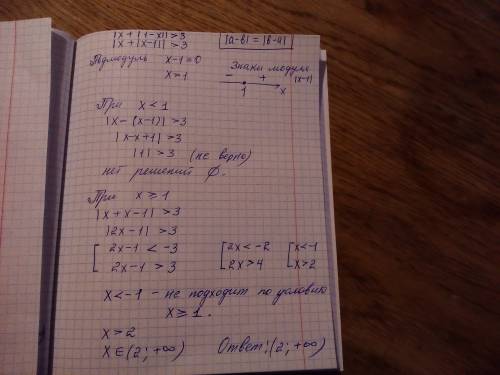 |x+|1-x||>3
|x+|x-1||>3 |a-b|=|b-a|
Подмодуль x-1=0 Знаки модуля
x=1 - + |x-1|
1 x
При x<1
|x-(x-1)|>3
|x-x+1|>3
|1|>3 (не верно)
нет решений Ø.
При x≥1
|x+x-1|>3
|2x-1|>3
[ 2x-1<-3 [ 2x<-2 [ x<-1
2x-1>3 2x>4 x>2
x<-1 - не подходит по условию
x≥1.
x>2
x∈(2;+∞) Ответ:(2;+∞)